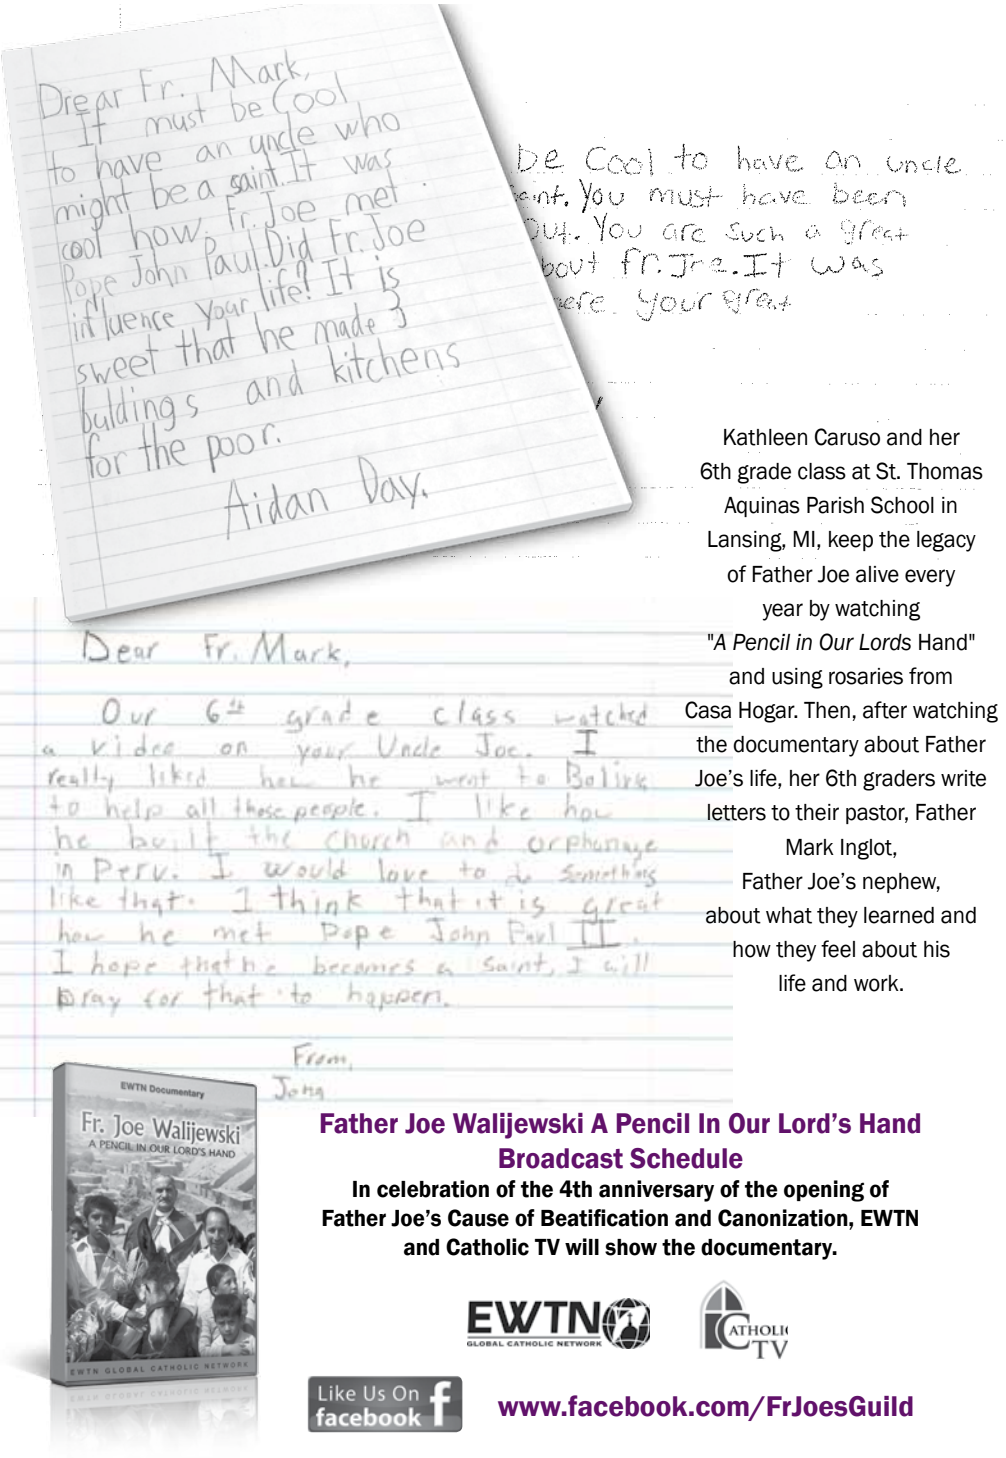 Drear Fr. Mark,
It must be Cool
to have an uncle who
might be a saint. It was
cool how. Fr. Joe met
Pope John Paul. Did Fr. Joe
influence your life? It is
sweet that he made 3
buldings and kitchens
for the poor.
Aidan Day.
be Cool to have an uncle
saint. You must have been
out. You are such a great
bout fr. Joe. It was
here your great
Kathleen Caruso and her
6th grade class at St. Thomas
Aquinas Parish School in
Lansing, MI, keep the legacy
of Father Joe alive every
year by watching
"A Pencil in Our Lords Hand"
and using rosaries from
Casa Hogar. Then, after watching
the documentary about Father
Joe’s life, her 6th graders write
letters to their pastor, Father
Mark Inglot,
Father Joe’s nephew,
about what they learned and
how they feel about his
life and work.
Dear Fr. Mark,
Our 6th grade class watched
a video on your Uncle Joe. I
really liked how he went to Bolivia
to help all those people. I like how
he built the church and orphanage
in Peru. I would love to do something
like that. I think that it is great
how he met Pope John Paul II.
I hope that he becomes a saint, I will
pray for that to happen.
From,
EWTN Documentary
Fr. Joe Walijewski
A PENCIL IN OUR LORD'S HAND
EWTN GLOBAL CATHOLIC NETWORK
Father Joe Walijewski A Pencil In Our Lord’s Hand
Broadcast Schedule
In celebration of the 4th anniversary of the opening of
Father Joe’s Cause of Beatification and Canonization, EWTN
and Catholic TV will show the documentary.
EWTN
GLOBAL CATHOLIC NETWORK
CATHOLIC
TV
Like Us On
facebook
www.facebook.com/FrJoesGuild